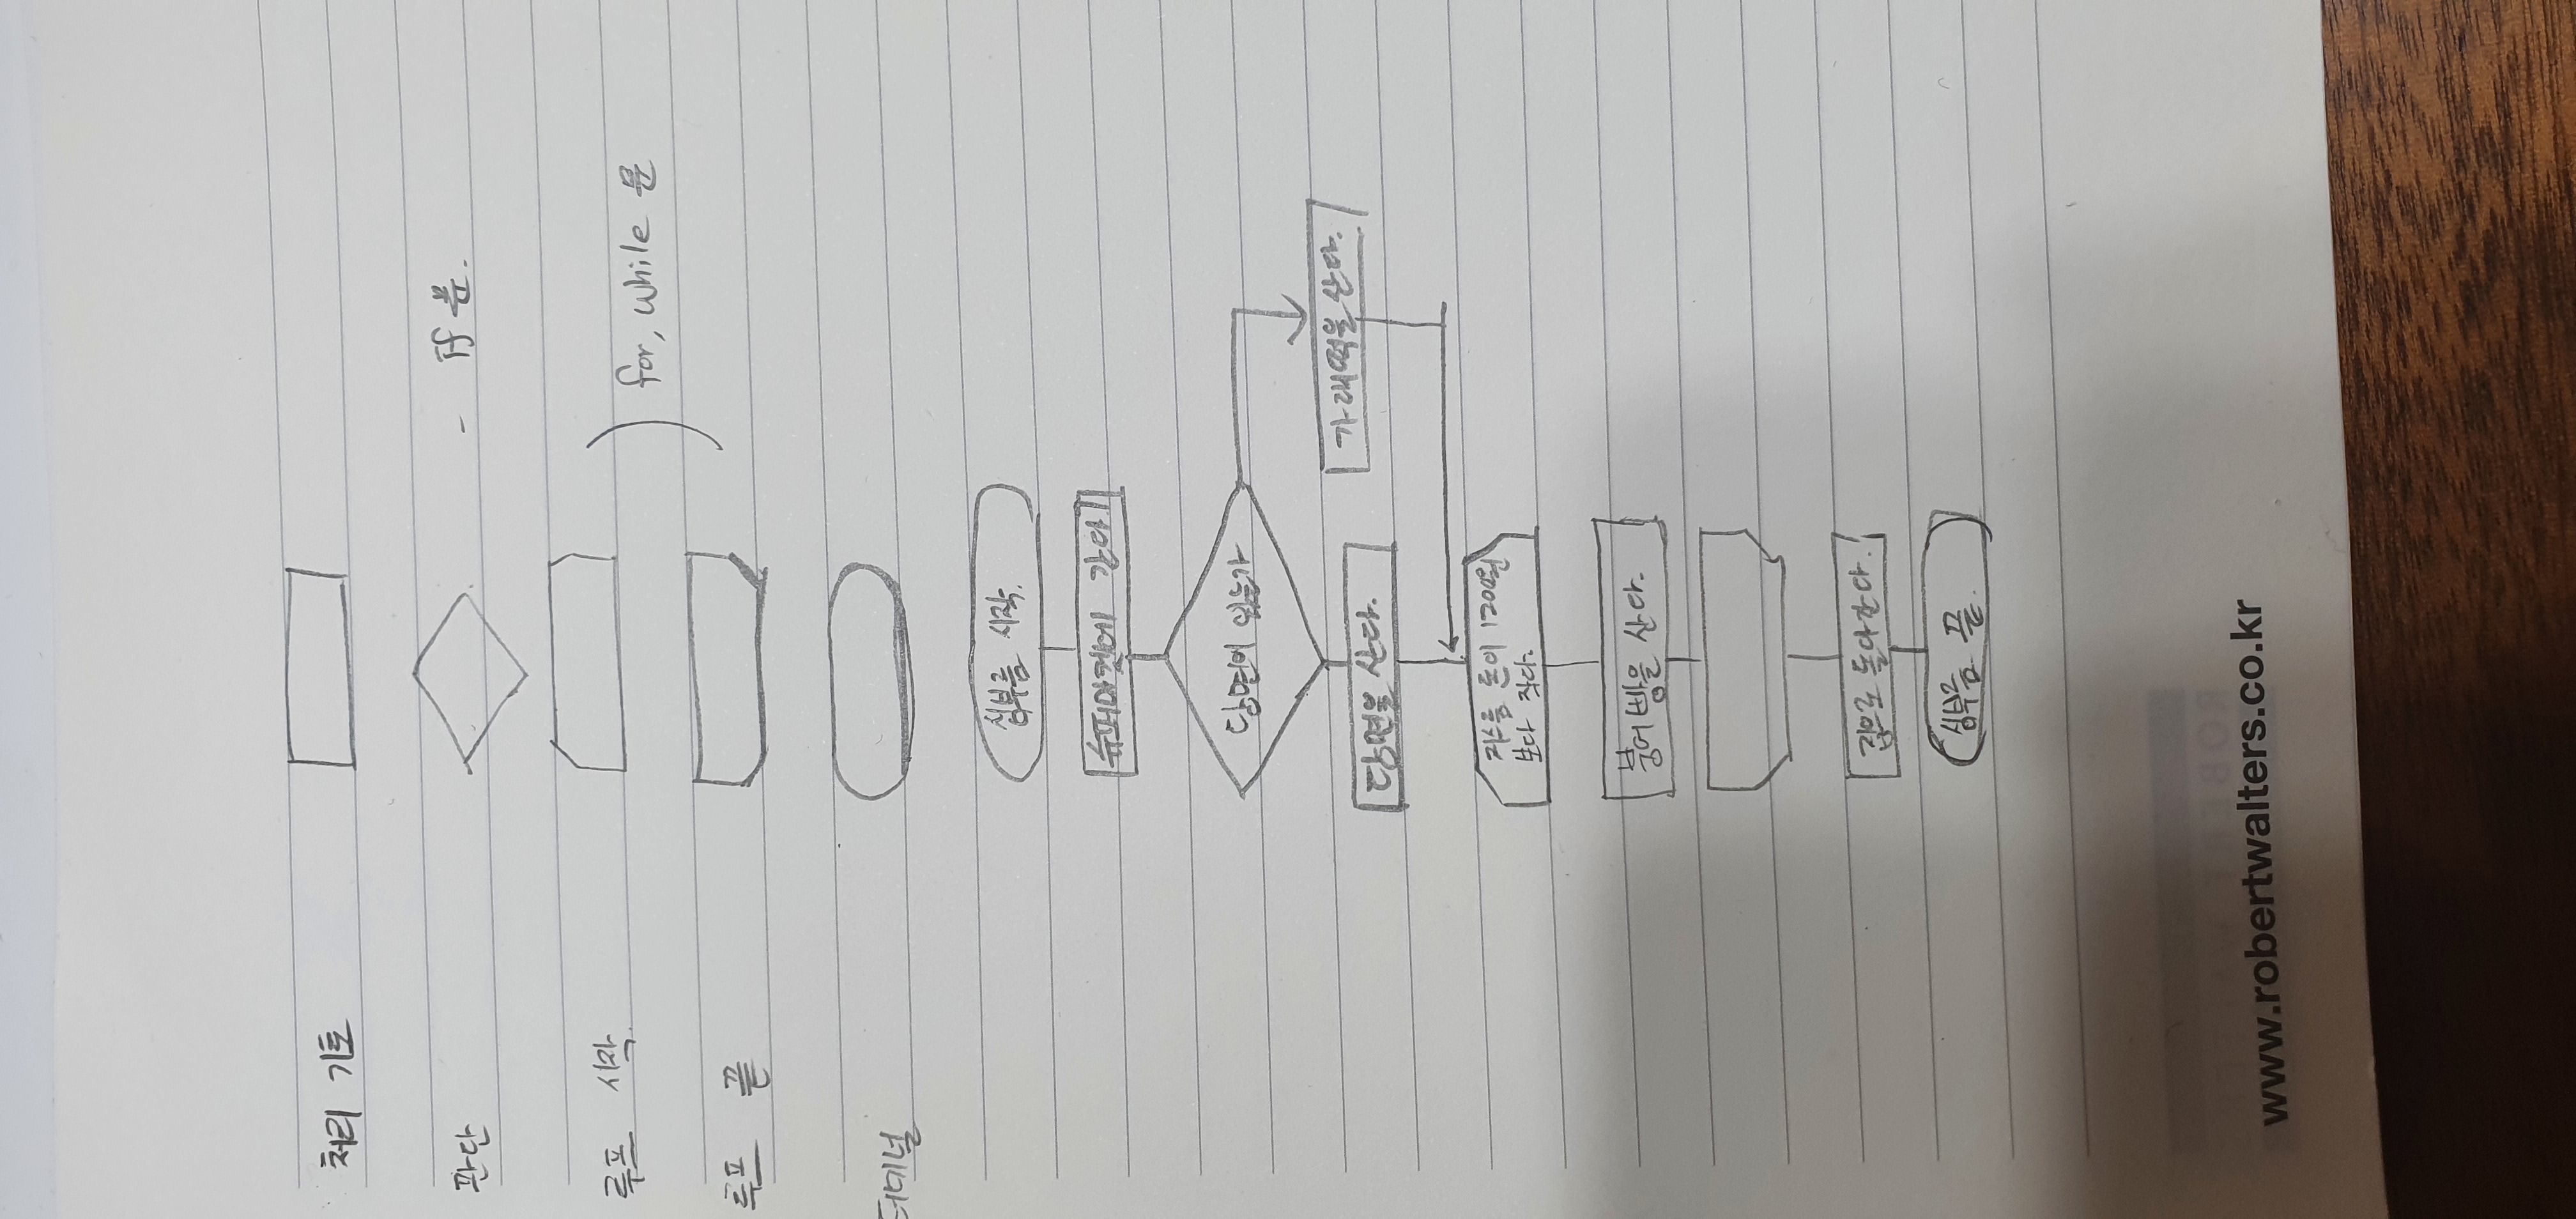 처리 기호
판단 - If 문.
루프 시작
루프 끝
) for, while 문
터미널
심부름 시작.
슈퍼마켓에 간다
당면이 있는가
당면을 산다.
가래떡을 산다.
거스름 돈이 1200원
보다 작다.
붕어빵을 산다.
집으로 돌아간다.
심부름 끝.
www.robertwalters.co.kr